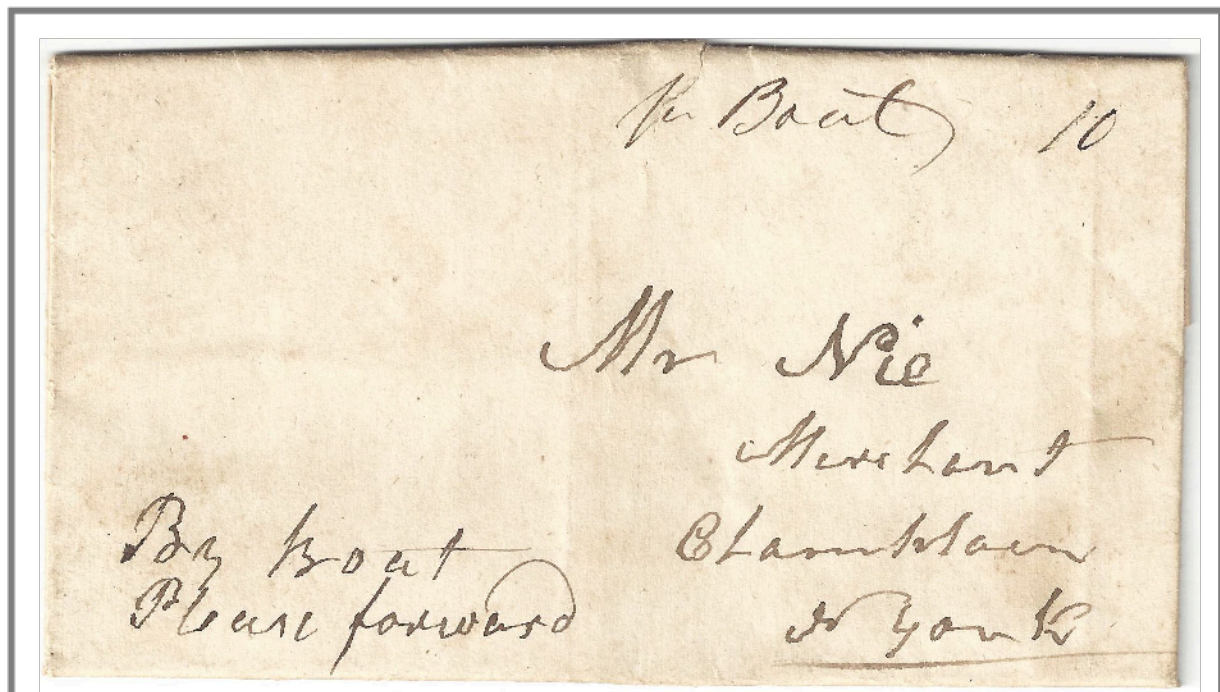 Per Boat 10
Mr Nie
Merchant
Champlain
N York
By boat
Please forward